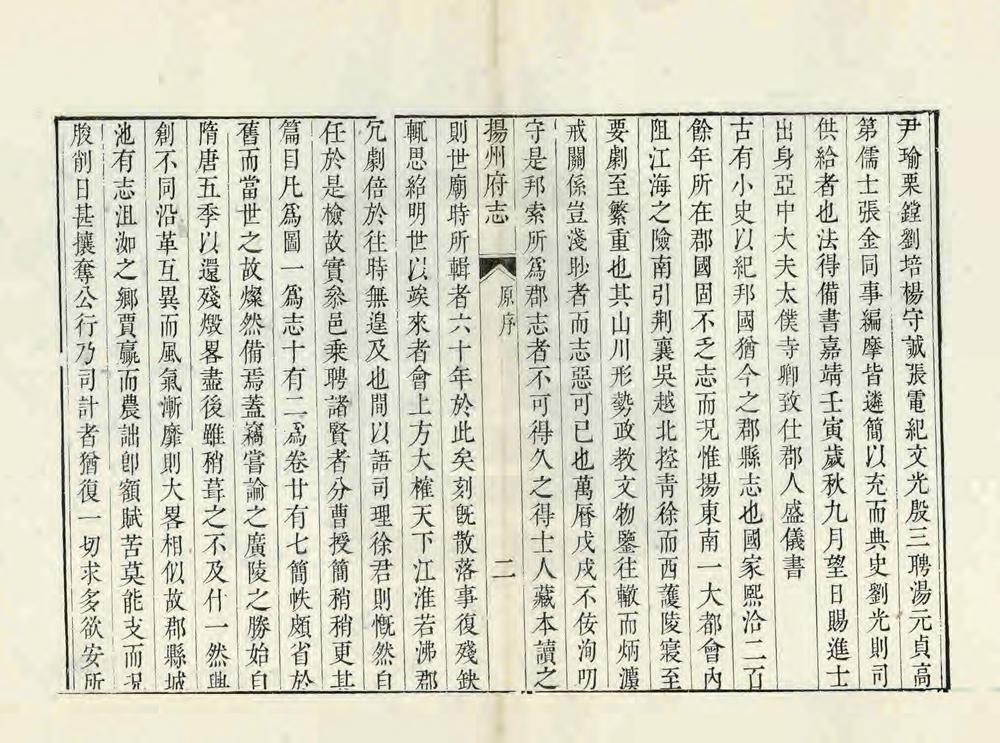 尹瑜栗鏜劉培楊守誠張電紀文光殷三聘湯元貞高
第儒士張金同事編摩皆遴簡以充而典史劉光則司
供給者也法得備書嘉靖壬寅歲秋九月望日賜進士
出身亞中大夫太僕寺卿致仕郡人盛儀書
古有小史以紀邦國猶今之郡縣志也國家熙洽二百
餘年所在郡國固不乏志而况惟揚東南一大都會內
阻江海之險南引荆襄吳越北控青徐而西護陵寢至
要劇至繁重也其山川形勢政教文物鑒往轍而炳瀵
戒關係豈淺眇者而志惡可已也萬曆戊戌不佞洵叨
守是邦索所爲郡志者不可得久之得士人藏本讀之
揚州府志 原序 二
則世廟時所輯者六十年於此矣刻旣散落事復殘缺
輒思紹明世以竢來者會上方大榷天下江淮若沸郡
冗劇倍於往時無遑及也間以語司理徐君則慨然自
任於是檢故實叅邑乘聘諸賢者分曹授簡稍稍更其
篇目凡爲圖一爲志十有二爲卷廿有七簡帙頗省於
舊而當世之故燦然備焉蓋竊嘗論之廣陵之勝始自
隋唐五季以還殘燬畧盡後雖稍葺之不及什一然興
創不同沿革互異而風氣漸靡則大畧相似故郡縣城
池有志沮洳之鄉賈贏而農詘卽額賦苦莫能支而况
朘削日甚攘奪公行乃司計者猶復一切求多欲安所